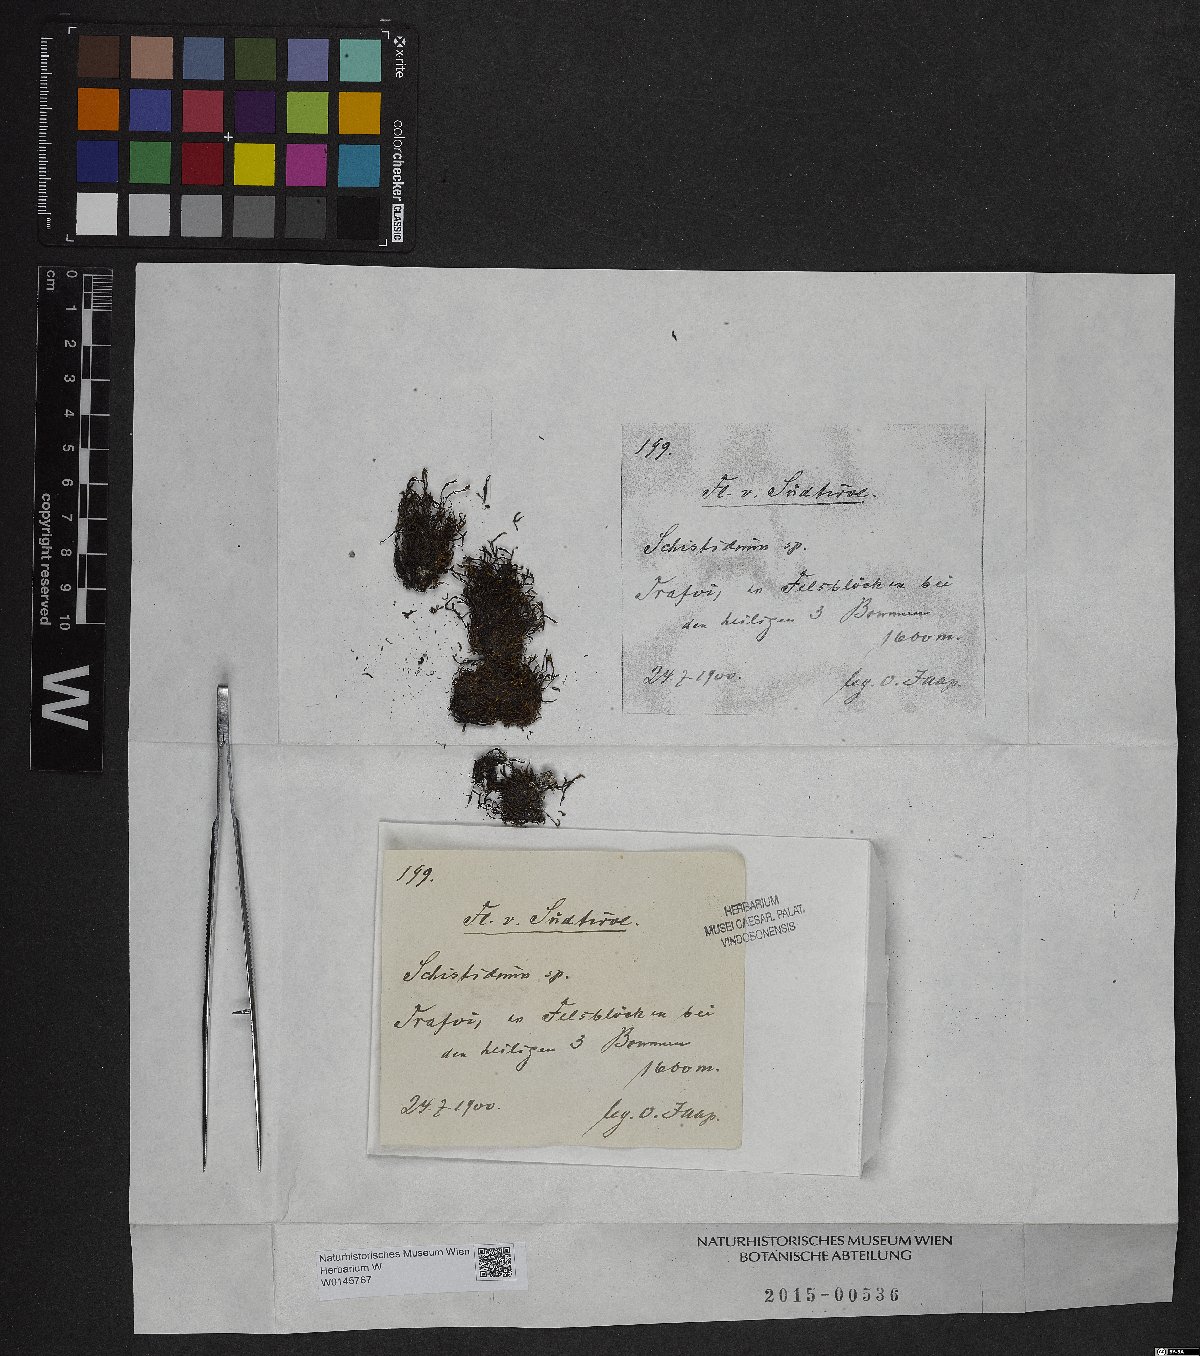 x-rite
colorchecker CLASSIC
mm
cm
0 1 2 3 4 5 6 7 8 9 10
copyright reserved
W
199.
Fl. v. Südtirol.
Schistidium sp.
Trafoi, an Felsblöcken bei
den heiligen 3 Brunnen
1600 m.
24.7.1900.
leg. O. Jaap.
199.
Fl. v. Südtirol.
Schistidium sp.
Trafoi, an Felsblöcken bei
den heiligen 3 Brunnen
1600 m.
24.7.1900.
leg. O. Jaap.
HERBARIUM
MUSEI CAESAR. PALAT.
VINDOBONENSIS
Naturhistorisches Museum Wien
Herbarium W
W0145767
NATURHISTORISCHES MUSEUM WIEN
BOTANISCHE ABTEILUNG
2015-00536
CC BY-SA